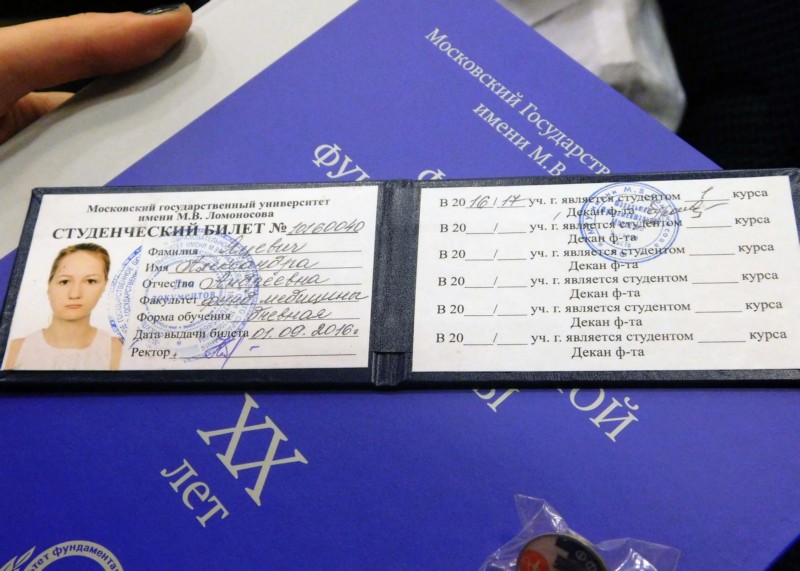 Московский Государств
имени М.В.
ФУН
Московский государственный университет
имени М.В. Ломоносова
СТУДЕНЧЕСКИЙ БИЛЕТ № 10160040
Фамилия
Имя Александра
Отчество Андреевна
Факультет фунд. медицины
Форма обучения дневная
Дата выдачи билета 01.09.2016г
Ректор
В 2016/17 уч. г. является студентом 1 курса
Декан ф-та
В 20 / уч. г. является студентом курса
Декан ф-та
В 20 / уч. г. является студентом курса
Декан ф-та
В 20 / уч. г. является студентом курса
Декан ф-та
В 20 / уч. г. является студентом курса
Декан ф-та
В 20 / уч. г. является студентом курса
Декан ф-та
ОЙ
Ы
XX
лет
фундамента